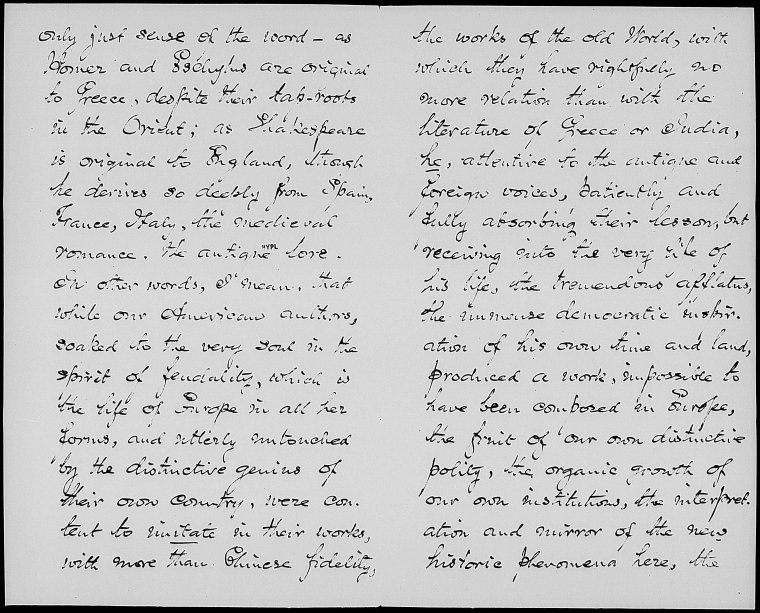 only just sense of the word – as
Homer and Eschylus are original
to Greece, despite their tap-roots
in the Orient; as Shakespeare
is original to England, though
he derives so deeply from Spain,
France, Italy, the medieval
romance, the antique lore.
NYPL
In other words, I mean, that
while our American authors,
soaked to the very soul in the
spirit of feudality, which is
the life of Europe in all her
forms, and utterly untouched
by the distinctive genius of
their own country, were con-
tent to imitate in their works,
with more than Chinese fidelity,
the works of the old World, with
which they have rightfully no
more relation than with the
literature of Greece or India,
he, attentive to the antique and
foreign voices, patiently and
fully absorbing their lesson, but
receiving into the very life of
his life, the tremendous afflatus,
the immense democratic inspir-
ation of his own time and land,
produced a work, impossible to
have been composed in Europe,
the fruit of our own distinctive
polity, the organic growth of
our own institutions, the interpret-
ation and mirror of the new
historic phenomena here, the